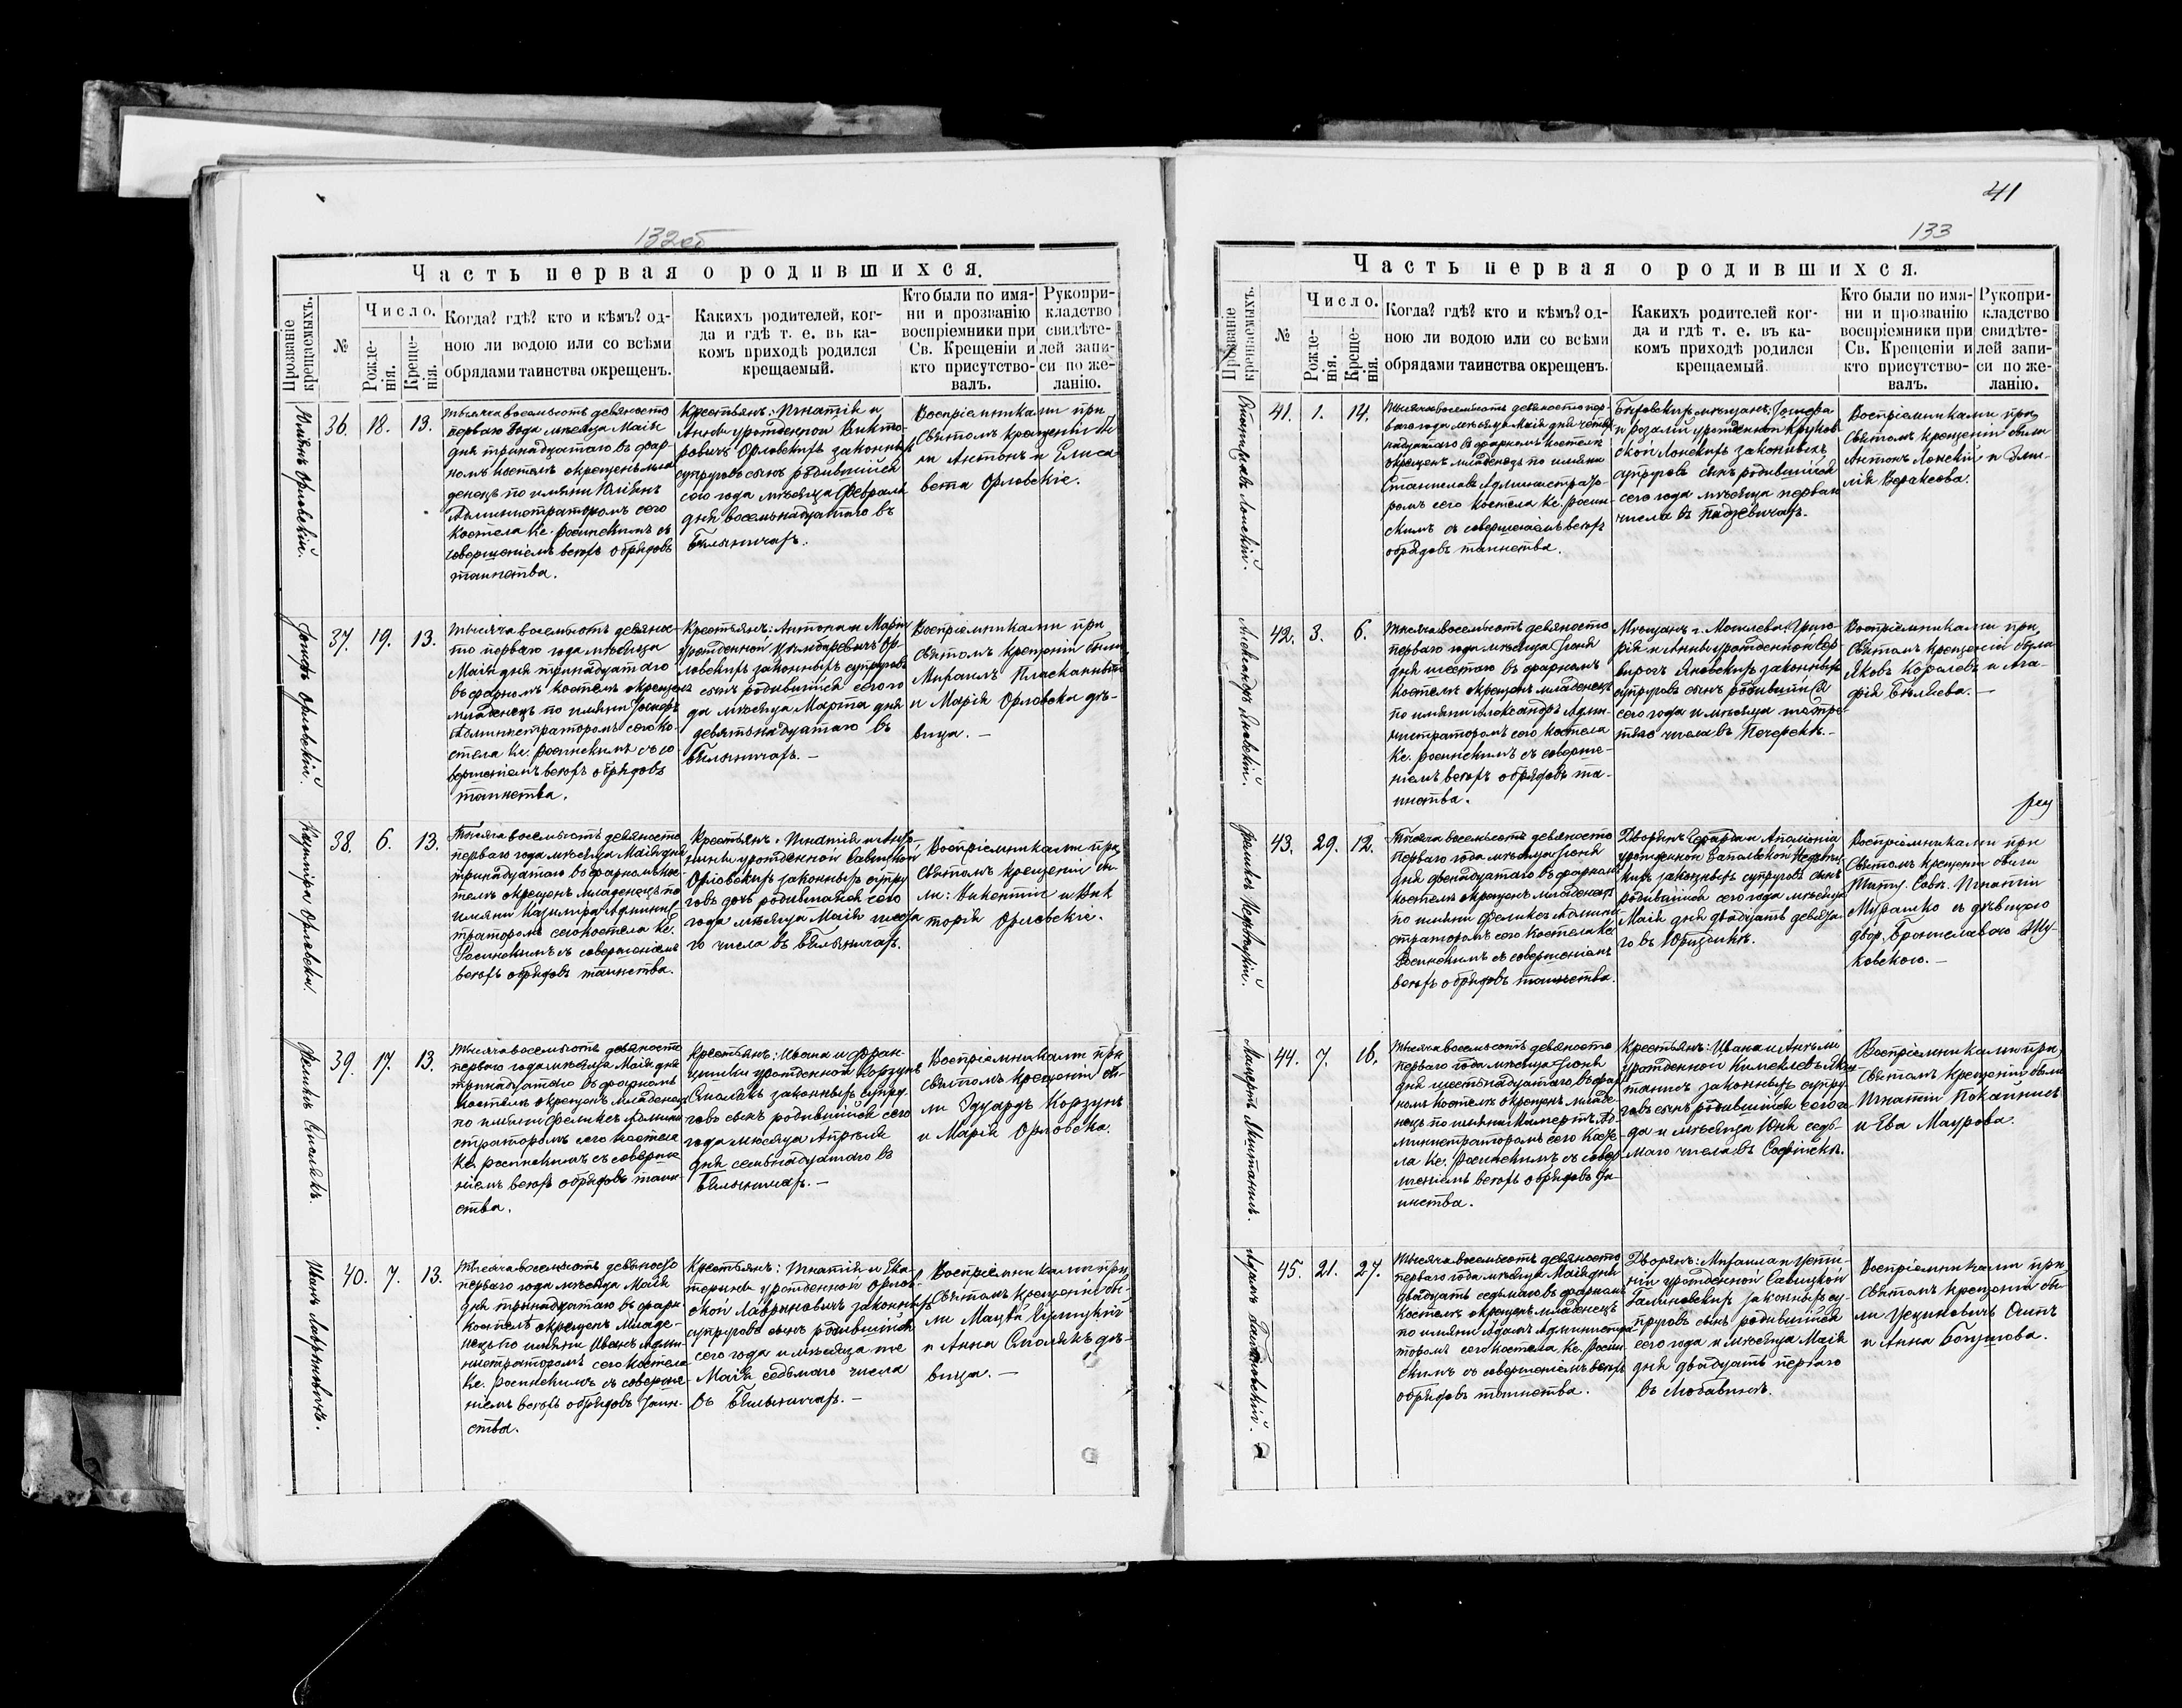 132об
Часть первая о родившихся.
Прозваніе крещаемыхъ.
№
Число.
Рожде-
нія.
Креще-
нія.
Когда? гдѣ? кто и кѣмъ? од-
ною ли водою или со всѣми
обрядами таинства окрещенъ.
Какихъ родителей, ког-
да и гдѣ т. е. въ ка-
комъ приходѣ родился
крещаемый.
Кто были по имя-
ни и прозванію
воспріемники при
Св. Крещеніи и
кто присутство-
валъ.
Рукопри-
кладство
свидѣте-
лей запи-
си по же-
ланію.
Юліянъ Орловскій.
36. 18. 13.
Тысяча восемьсотъ девяносто
перваго года мѣсяца Маія
дня тринадцатаго въ фар-
номъ костелѣ окрещенъ мла
денецъ по имяни Юліянъ
Администраторомъ сего
костела Кс. Росинскимъ съ
совершеніемъ всѣхъ обрядовъ
таинства.
Крестьянъ: Игнатія и
Анны урожденной Викто-
ровичъ Орловскихъ законныхъ
супруговъ сынъ родившійся
сего года мѣсяца Февраля
дня восемьнадцатаго въ
Бялыничахъ.
Воспріемниками при
Святомъ крещеніи бы
ли Антонъ и Елиса
вета Орловскіе.
Іосифъ Орловскій.
37. 19. 13.
Тысяча восемьсотъ девянос-
то перваго года мѣсяца
Маія дня тринадцатаго
въ фарномъ костелѣ окрещенъ
младенецъ по имяни Іосифъ
Администраторомъ сего ко-
стела Кс. Росинскимъ съ со
вершеніемъ всѣхъ обрядовъ
таинства.
Крестьянъ: Антона и Маріи
урожденной Ор-
ловскихъ законныхъ супруговъ
сынъ родившійся сего го
да мѣсяца Марта дня
девятьнадцатаго въ
Бялыничахъ. —
Воспріемниками при
Святомъ крещеніи были
Михаилъ
и Марія Орловска дѣ-
вица. —
Казиміра Орловска.
38. 6. 13.
Тысяча восемьсотъ девяносто
перваго года мѣсяца Маія дня
тринадцатаго въ фарномъ кос-
телѣ окрещенъ младенецъ по
имяни Казиміра Админис
траторомъ сего костела Кс.
Росинскимъ съ совершеніемъ
всѣхъ обрядовъ таинства.
Крестьянъ: Игнатія и
урожденной Савицкой
Орловскихъ законныхъ супру
говъ дочь родившаяся сего
года мѣсяца Маія шеста
го числа въ Бялыничахъ.
Воспріемниками при
Святомъ крещеніи бы-
ли: Викентій и Вик
торія Орловскіе.
Феликсъ Смолякъ.
39. 17. 13.
Тысяча восемьсотъ девяносто
перваго года мѣсяца Маія дня
тринадцатаго въ фарномъ
костелѣ окрещенъ младенецъ
по имяни Феликсъ Админи
страторомъ сего костела
Кс. Росинскимъ съ соверше
ніемъ всѣхъ обрядовъ таин
ства.
Крестьянъ: Ивана и Фран-
цишки урожденной Корзунъ
Смолякъ законныхъ супру-
говъ сынъ родившійся сего
года мѣсяца Апрѣля
дня семьнадцатаго въ
Бялыничахъ. —
Воспріемниками при
Святомъ крещеніи бы-
ли Эдуардъ Корзунъ
и Марія Орловска.
Иванъ Лавриновичъ.
40. 7. 13.
Тысяча восемьсотъ девяносто
перваго года мѣсяца Маія
дня тринадцатаго въ фарн.
костелѣ окрещенъ младе-
нецъ по имяни Иванъ Адми-
нистраторомъ сего костела
Кс. Росинскимъ съ соверше
ніемъ всѣхъ обрядовъ таин-
ства.
Крестьянъ: Игнатія и Ека-
терины урожденной Орлов-
ской Лавриновичъ законныхъ
супруговъ сынъ родившійся
сего года и мѣсяца же
Маія седьмаго числа
въ Бялыничахъ. —
Воспріемниками при
Святомъ крещеніи бы-
ли Мацѣй
и Анна Смолякъ дѣ-
вица. —
41
133
Часть первая о родившихся.
Прозваніе крещаемыхъ.
№
Число.
Рожде-
нія.
Креще-
нія.
Когда? гдѣ? кто и кѣмъ? од-
ною ли водою или со всѣми
обрядами таинства окрещенъ.
Какихъ родителей ког-
да и гдѣ т. е. въ ка-
комъ приходѣ родился
крещаемый
Кто были по имя-
ни и прозванію
воспріемники при
Св. Крещеніи и
кто присутство-
валъ.
Рукопри-
кладство
свидѣте-
лей запи-
си по же-
ланію.
Станиславъ Лонскій.
41. 1. 14.
Тысяча восемьсотъ девяносто пер-
ваго года мѣсяца Маія дня четыр
надцатаго въ фарномъ костелѣ
окрещенъ младенецъ по имяни
Станиславъ Администрато-
ромъ сего костела Кс. Росин-
скимъ съ совершеніемъ всѣхъ
обрядовъ таинства.
мѣщанъ: Іосифа
и Розаліи урожденной Круков
ской Лонскихъ законныхъ
супруговъ сынъ родившійся
сего года мѣсяца перваго
числа въ
Воспріемниками при
Святомъ крещеніи были
Антонъ Лонскій и Эми-
лія Вераксова.
Александръ Яновскій.
42. 3. 6.
Тысяча восемьсотъ девяносто
перваго года мѣсяца Іюня
дня шестаго въ фарномъ
костелѣ окрещенъ младенецъ
по имяни Александръ Адми-
нистраторомъ сего костела
Кс. Росинскимъ съ соверше-
ніемъ всѣхъ обрядовъ та-
инства.
Мѣщанъ г. Могилева: Григо-
рія и Анны урожденной
Яновскихъ законныхъ
супруговъ сынъ родившійся
сего года и мѣсяца же тре-
тяго числа въ Печерскѣ. —
Воспріемниками при
Святомъ крещеніи были
Яковъ Королевъ и Ага-
фія Бѣляева. —
Феликсъ
43. 29. 12.
Тысяча восемьсотъ девяносто
перваго года мѣсяца Іюня
дня двенадцатаго въ фарномъ
костелѣ окрещенъ младенецъ
по имяни Феликсъ Админи
страторомъ сего костела Кс
Росинскимъ съ совершеніемъ
всѣхъ обрядовъ таинства.
Дворянъ: и Аполоніи
урожденной
законныхъ супруговъ сынъ
родившійся сего года мѣсяца
Маія дня двадцать девята-
го въ Юриздикѣ.
Воспріемниками при
Святомъ крещеніи были
Титул. Совѣт. Игнатій
Мурашко съ дѣвицею
двор. Брониславою
ковскою. —
44. 7. 16.
Тысяча восемьсотъ девяносто
перваго года мѣсяца Іюня
дня шестьнадцатаго въ фар
номъ костелѣ окрещенъ младе
нецъ по имяни Ад-
министраторомъ сего косте-
ла Кс. Росинскимъ съ совер-
шеніемъ всѣхъ обрядовъ та-
инства.
Крестьянъ: Ивана и Анѣли
урожденной
законныхъ супру-
говъ сынъ родившійся сего го
да и мѣсяца Юня седь-
маго числа въ Софіевкѣ.
Воспріемниками при
Святомъ крещеніи были
Игнатій
и Ева Маурова.
Адамъ Галиновскій.
45. 21. 27.
Тысяча восемьсотъ девяносто
перваго года мѣсяца Маія дня
двадцать седьмаго въ фарномъ
костелѣ окрещенъ младенецъ
по имяни Адамъ Администра
торомъ сего костела Кс. Росин
скимъ съ совершеніемъ всѣхъ
обрядовъ таинства.
Дворянъ: Михаила и Усти-
ніи урожденной Савицкой
Галиновскихъ законныхъ су-
пруговъ сынъ родившійся
сего года и мѣсяца Маія
дня двадцать перваго
въ
Воспріемниками при
Святомъ крещеніи бы-
ли Осипъ
и Анна Богушова.